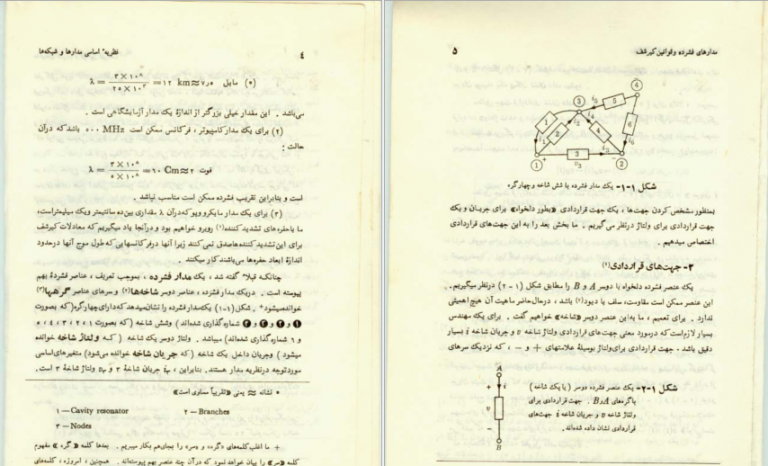 نظریهٔ اساسی مدارها و شبکه‌ها
۴
λ = ۳×۱۰^۸ / ۲۵×۱۰^۳ = ۱۲ km ≈ ۷٫۵ مایل (*)
می‌باشد . این مقدار خیلی بزرگتر از اندازهٔ یک مدار آزمایشگاهی است .
(۲) برای یک مدار کامپیوتر ، فرکانس ممکن است ۵۰۰ MHz باشد که در آن
حالت :
λ = ۳×۱۰^۸ / ۵×۱۰^۸ = ۶۰ Cm ≈ ۲ فوت
است و بنابراین تقریب فشرده ممکن است مناسب نباشد .
(۳) برای یک مدار مایکروویو که در آن λ مقداری بین ده سانتیمتر و یک میلیمتر است،
ما با حفره‌های تشدید کننده(۱) روبرو خواهیم بود و در آنجا یاد میگیریم که معادلات کیرشف
برای این تشدید کننده‌ها صدق نمی‌کنند زیرا آنها در فرکانسهایی که طول موج آنها در حدود
اندازهٔ ابعاد حفره‌ها می‌باشند کار میکنند .
چنانکه قبلاً گفته شد ، یک مدار فشرده ، بموجب تعریف ، عناصر فشردهٔ بهم
پیوسته است . در یک مدار فشرده ، عناصر دوسر شاخه‌ها(۲) و سرهای عناصر گره‌ها(۳)
خوانده میشود+ . شکل (۱-۱) یک مدار فشرده را نشان میدهد که دارای چهار گره (که بصورت
۱ و ۲ و ۳ و ۴ شماره گذاری شده‌اند) و شش شاخه (که بصورت ۱ ، ۲ ، ۳ ، ۴ ، ۵
و ۶ شماره گذاری شده‌اند) میباشد . ولتاژ دوسر یک شاخه (که ولتاژ شاخه خوانده
میشود) و جریان داخل یک شاخه (که جریان شاخه خوانده می‌شود) متغیرهای اساسی
مورد توجه در نظریه مدار هستند.
* نشانه ≈ یعنی «تقریباً مساوی است»
۱ — Cavity resonator ۲ — Branches
۳ — Nodes
مدارهای فشرده و قوانین کیرشف
۵
④
③
①
②
1
2
3
4
5
6
+
−
شکل ۱-۱- یک مدار فشرده با شش شاخه و چهار گره
بمنظور مشخص کردن جهت‌ها ، یک جهت قراردادی «بطور دلخواه» برای جریان و یک
جهت قراردادی برای ولتاژ در نظر می‌گیریم . ما بخش بعد را به این جهت‌های قراردادی
اختصاص میدهیم .
۲- جهت‌های قراردادی(۱)
یک عنصر فشرده دلخواه با دوسر A و B را مطابق شکل (۲-۱) در نظر میگیریم .
این عنصر ممکن است مقاومت، سلف یا دیود(۲) باشد ، در حال حاضر ماهیت آن هیچ اهمیتی
ندارد . برای تعمیم ، ما به این عنصر دوسر «شاخه» خواهیم گفت . برای یک مهندس
بسیار لازم است که در مورد معنی جهت‌های قراردادی ولتاژ شاخه v و جریان شاخه i بسیار
دقیق باشد . جهت قراردادی برای ولتاژ بوسیلهٔ علامتهای + و − ، که نزدیک سرهای
A
+
i
v
−
B
شکل ۲-۱- یک عنصر فشرده دوسر (یا یک شاخه)
با گره‌های A و B . جهت قراردادی برای
ولتاژ شاخه v و جریان شاخه i جهت‌های
قراردادی نشان داده شده‌اند .